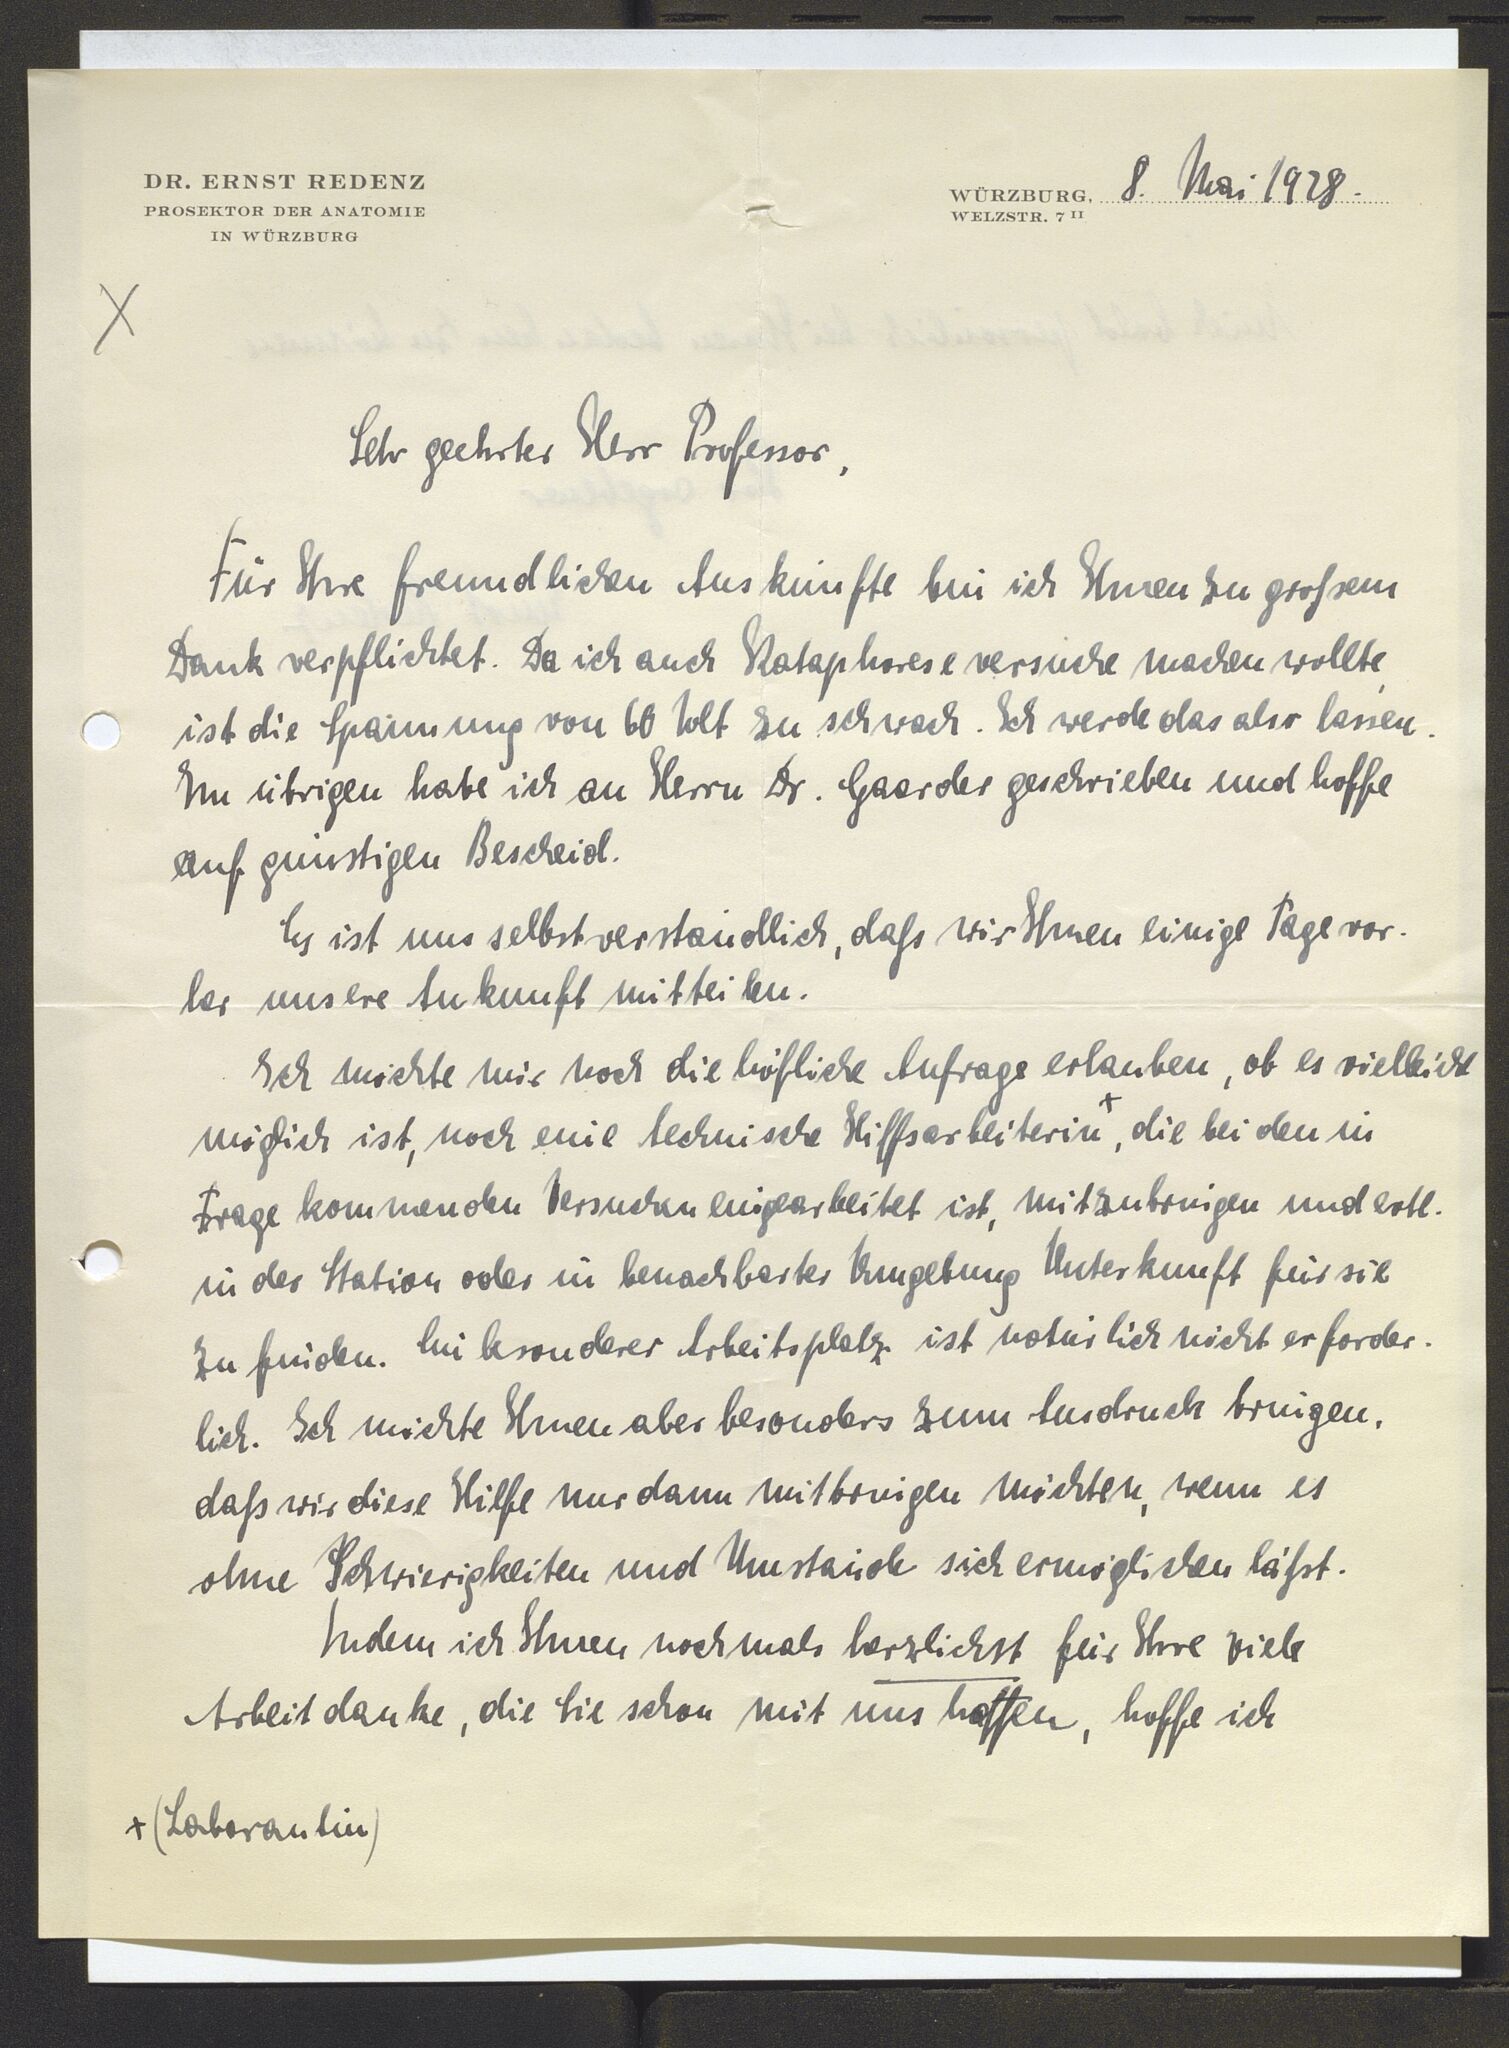 DR. ERNST REDENZ
PROSEKTOR DER ANATOMIE
IN WÜRZBURG
WÜRZBURG, 8. Mai 1928.
WELZSTR. 7 II
Sehr geehrter Herr Professor,
Für Ihre freundlichen Auskünfte bin ich Ihnen zu großem
Dank verpflichtet. Da ich auch Kataphoreseversuche machen wollte,
ist die Spannung von 60 Volt zu schwach. Ich werde das also lassen.
Im übrigen habe ich an Herrn Dr. Gaarder geschrieben und hoffe
auf günstigen Bescheid.
Es ist uns selbstverständlich, daß wir Ihnen einige Tage vor-
her unsere Ankunft mitteilen.
Ich möchte mir noch die höfliche Anfrage erlauben, ob es vielleicht
möglich ist, noch eine technische Hilfsarbeiterin+, die bei den in
Frage kommenden Versuchen eingearbeitet ist, mitzubringen und evtl.
in der Station oder in benachbarter Umgebung Unterkunft für sie
zu finden. Ein besonderer Arbeitsplatz ist natürlich nicht erforder-
lich. Ich möchte Ihnen aber besonders zum Ausdruck bringen,
daß wir diese Hilfe nur dann mitbringen möchten, wenn es
ohne Schwierigkeiten und Umstände sich ermöglichen läßt.
Indem ich Ihnen nochmals herzlichst für Ihre viele
Arbeit danke, die Sie schon mit uns hatten, hoffe ich
+ (Laborantin)